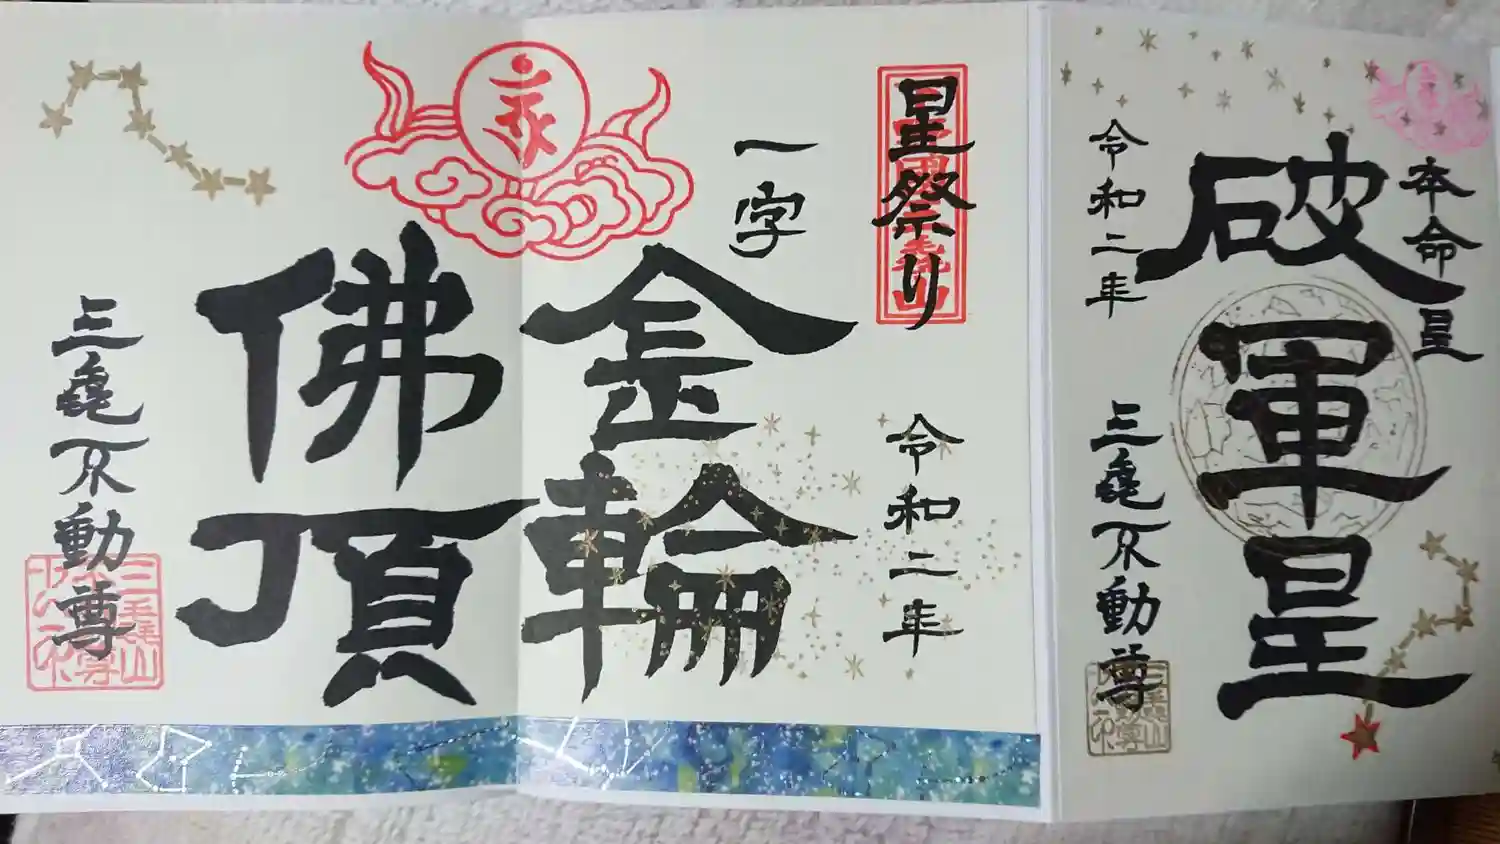 本命星
破軍星
令和二年
三亀不動尊
星祭り
令和二年
一字
金輪
佛頂
三亀不動尊